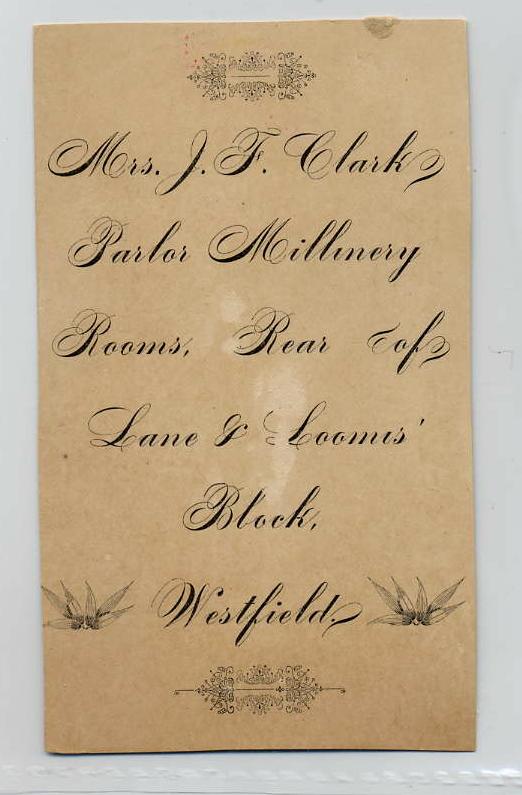 Mrs. J. F. Clark
Parlor Millinery
Rooms, Rear of
Lane & Loomis'
Block,
Westfield.